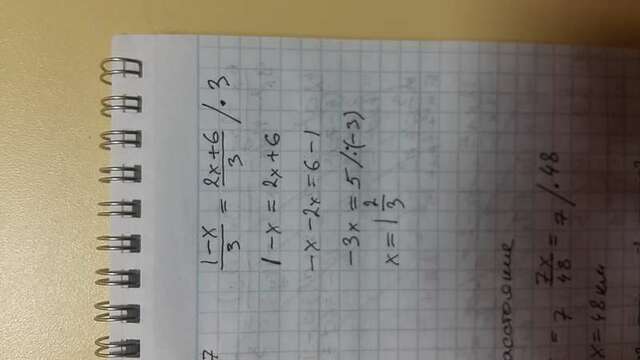 7
(1-x)/3 = (2x+6)/3 /·3
1-x = 2x+6
-x-2x=6-1
-3x = 5 /:(-3)
x=1 2/3
асстояние
= 7 7x/48 = 7 /·48
x=48км